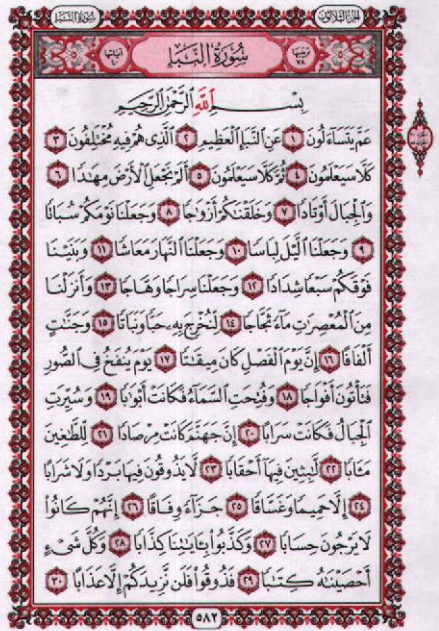 سُورَةُ النَّبَإِ الجزء الثلاثون
ترتيبها ٧٨ سُورَةُ النَّبَإِ آياتها ٤٠
بِسْمِ ٱللَّهِ ٱلرَّحْمَٰنِ ٱلرَّحِيمِ
عَمَّ يَتَسَآءَلُونَ ١ عَنِ ٱلنَّبَإِ ٱلْعَظِيمِ ٢ ٱلَّذِى هُمْ فِيهِ مُخْتَلِفُونَ ٣
كَلَّا سَيَعْلَمُونَ ٤ ثُمَّ كَلَّا سَيَعْلَمُونَ ٥ أَلَمْ نَجْعَلِ ٱلْأَرْضَ مِهَٰدًا ٦
وَٱلْجِبَالَ أَوْتَادًا ٧ وَخَلَقْنَٰكُمْ أَزْوَٰجًا ٨ وَجَعَلْنَا نَوْمَكُمْ سُبَاتًا
٩ وَجَعَلْنَا ٱلَّيْلَ لِبَاسًا ١٠ وَجَعَلْنَا ٱلنَّهَارَ مَعَاشًا ١١ وَبَنَيْنَا
فَوْقَكُمْ سَبْعًا شِدَادًا ١٢ وَجَعَلْنَا سِرَاجًا وَهَّاجًا ١٣ وَأَنزَلْنَا
مِنَ ٱلْمُعْصِرَٰتِ مَآءً ثَجَّاجًا ١٤ لِّنُخْرِجَ بِهِۦ حَبًّا وَنَبَاتًا ١٥ وَجَنَّٰتٍ
أَلْفَافًا ١٦ إِنَّ يَوْمَ ٱلْفَصْلِ كَانَ مِيقَٰتًا ١٧ يَوْمَ يُنفَخُ فِى ٱلصُّورِ
فَتَأْتُونَ أَفْوَاجًا ١٨ وَفُتِحَتِ ٱلسَّمَآءُ فَكَانَتْ أَبْوَٰبًا ١٩ وَسُيِّرَتِ
ٱلْجِبَالُ فَكَانَتْ سَرَابًا ٢٠ إِنَّ جَهَنَّمَ كَانَتْ مِرْصَادًا ٢١ لِّلطَّٰغِينَ
مَـَٔابًا ٢٢ لَّٰبِثِينَ فِيهَآ أَحْقَابًا ٢٣ لَّا يَذُوقُونَ فِيهَا بَرْدًا وَلَا شَرَابًا
٢٤ إِلَّا حَمِيمًا وَغَسَّاقًا ٢٥ جَزَآءً وِفَاقًا ٢٦ إِنَّهُمْ كَانُوا۟
لَا يَرْجُونَ حِسَابًا ٢٧ وَكَذَّبُوا۟ بِـَٔايَٰتِنَا كِذَّابًا ٢٨ وَكُلَّ شَىْءٍ
أَحْصَيْنَٰهُ كِتَٰبًا ٢٩ فَذُوقُوا۟ فَلَن نَّزِيدَكُمْ إِلَّا عَذَابًا ٣٠
٥٨٢